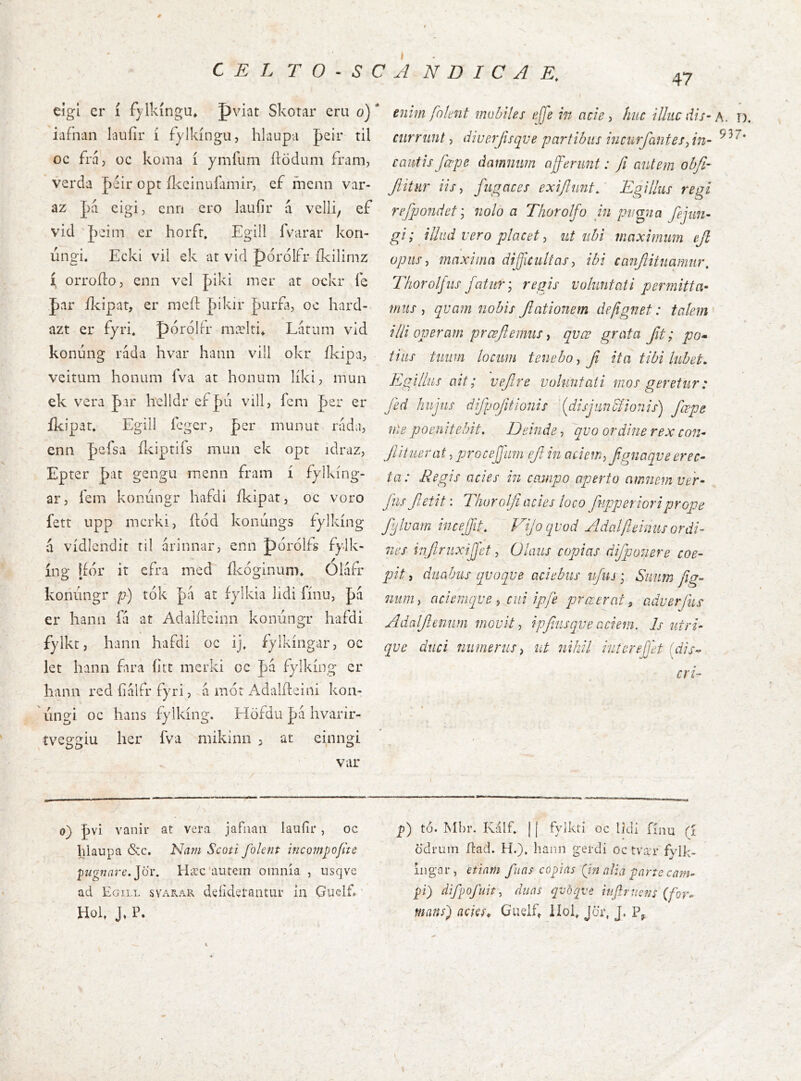 CELTO-SCANDICAE.
47
eigi er í fylkíngu. Þviat Skotar eru o)
iafnan laufir í fylkíngu, hlaupa þeir til
oc frá, oc koma í ymfum ftödum fram,
verda þéir opt fkeinufamir, ef menn var-
az þá eigi, enn ero laufir á velli, ef
vid þeim er horfr. Egill fvarar kon-
úngi. Ecki vil ek at vid Þórólfr fkilimz
í orrofto, enn vel þiki mer at ockr fe
þar fkipat, er meft þikir þurfa, oc hard-
azt er fyri. Þórólfr mælti. Látum vid
konúng ráda hvar hann vill okr fkipa,
veitum honum fva at honum líki, mun
ek vera þar helldr ef þú vill, fem þer er
fkipat. Egill feger, þer munut ráda,
enn þefsa fkiptifs mun ek opt idraz,
Epter þat gengu menn fram í fylkíng-
ar, fem konúngr hafdi fkipat, oc voro
fett upp merki, ftód konúngs fylkíng
á vídlendit til árinnar, enn Þórólfs fylk-
íng fór it efra med fkóginum. Óláfr
konúngr p) tók þá at fylkia lidi fínu, þá
er hann fá at Adalfteinn konúngr hafdi
fylkt, hann hafdi oc ij. fylkíngar, oc
let hann fara fitt merki oc þá fylkíng er
hann red fiálfr fyri, á mót Adalfteini kon-
úngi oc hans fylkíng. Höfdu þá hvarir-
tveggiu her fva mikinn, at einngi
var
enim folent mobiles effe in acie, huc illuc dis-
currunt, diverfisqve partibus incurfantes, in-
cautis fæpe damnum afferunt: fi autem obfi-
ftitur iis, fugaces exiftunt. Egillus regi
refpondet; nolo a Thorolfo in pugna fejun-
gi; illud vero placet, ut ubi maximum eft
opus, maxima difficultas, ibi conftituamur.
Thorolfus fatur; regis voluntati permitta-
mus, qvam nobis ftationem defignet: talem
illi operam præftemus, qvæ grata fit; po-
tius tuum locum tenebo, fi ita tibi lubet.
Egillus ait; veftre voluntati mos geretur:
fed hujus difpofitionis (disjunctionis) fæpe
me poenitebit. Deinde, qvo ordine rex con-
ftituerat, proceffum eft in aciem, fignaqve erec-
ta: Regis acies in campo aperto amnem ver-
fus ftetit: Thorolfi acies loco fupperiori prope
fylvam inceffit. Vifo qvod Adalfteinus ordi-
nes inftruxiffet, Olaus copias difponere coe-
pit, duabus qvoqve aciebus ufus; Suum fig-
num, aciemqve, cui ipfe præerat, adverfus
Adalftenum movit, ipfiusqve aciem. Is utri-
qve duci numerus, ut nihil intereffet (dis-
cri-
A. D.
937.
o) þvi vanir at vera jafnan laufir, oc
hlaupa &c. Nam Scoti folent incompofite
pugnare. Jör. Hæc autem omnia, usqve
ad EGILL SVARAR defiderantur in Guelf.
Hol, J, P.
p) tó. Mbr. Kálf. || fylkti oc lidi fínu (í
ödrum ftad. H.). hann gerdi oc tvær fylk-
íngar, etiam fuas copias (in alia parte cam-
pi) difpofuit, duas qvoqve inftruens (for-
mans) acies. Guelf, Hol, Jör, J. P,